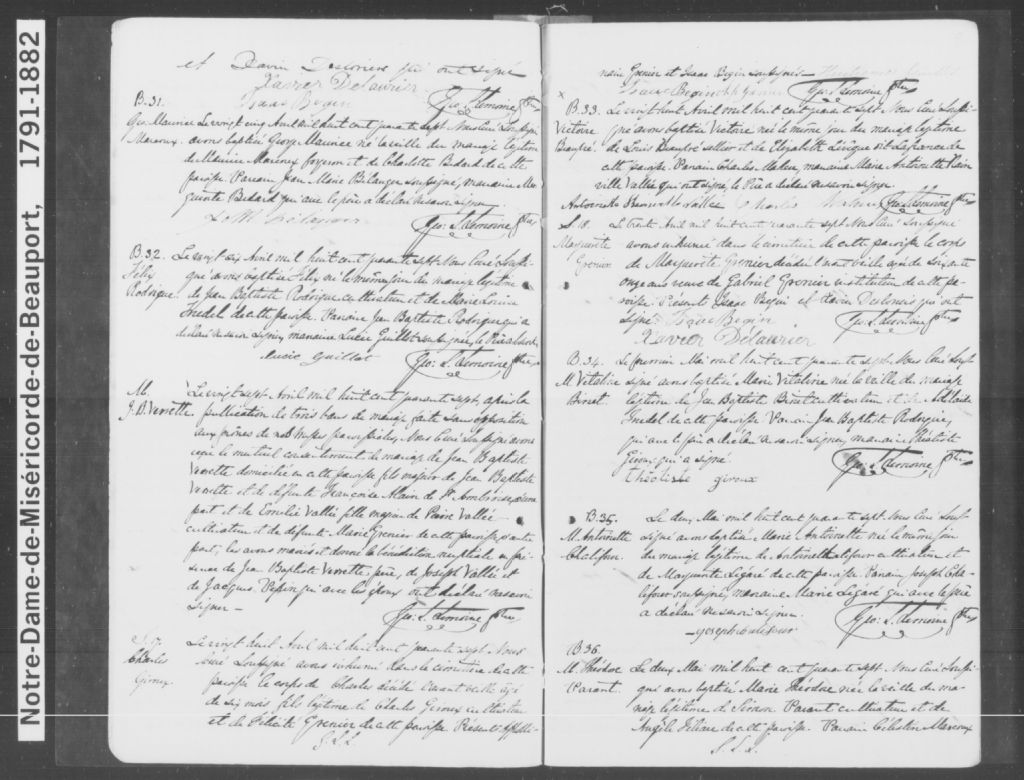 Notre-Dame-de-Miséricorde-de-Beauport, 1791-1882
et Xavier qui ont signé
Xavier Délaurier
Isaac Begin
Geo: S. Lemoine Ptre
B.31. Le vingt cinq Avril mil huit cent quarante sept Nous Curé soussigné
Geo Maurice
Marcoux. avons baptisé George Maurice né la veille du mariage légitime
de Maurice Marcoux forgeron et de Charlotte Bedard de cette
paroisse Parrain Jean Marie Bélanger soussigné, marraine Mar
guerite Bedard qui avec le père a déclaré ne savoir signer.
J. M. Bélanger
Geo: S. Lemoine Ptre
B.32. Le vingt six Avril mil huit cent quarante sept Nous Curé soussi-
Félix gné avons baptisé Félix né le même jour du mariage légitime
Rodrigue. de Jean Baptiste Rodrigue cultivateur et de Marie Louise
de cette paroisse. Parrain Jean Baptiste Rodrigue qui a
déclaré ne savoir signer, marraine Lucie Guillot soussignée, le Père absent.
Lucie Guillot
Geo: S. Lemoine Ptre
M. Le vingt sept Avril mil huit cent quarante sept, après la
J. B. Verrette. publication de trois bans de mariage faite sans opposition
aux prônes de nos messes paroissiales, Nous Curé soussigné avons
reçu le mutuel consentement de mariage de Jean Baptiste
Verrette domicilié en cette paroisse fils majeur de Jean Baptiste
Verrette et de défunte Françoise Alain de St Ambroise, d'une
part et de Emilie Vallée fille majeure de Pierre Vallée
cultivateur et de défunte Marie Grenier de cette paroisse, d'autre
part; les avons mariés et donné la bénédiction nuptiale en pré-
sence de Jean Baptiste Verrette, père, de Joseph Vallée et
de Jacques Pepin qui avec les époux ont déclaré ne savoir
signer —
Geo: S. Lemoine Ptre
S. 17. Le vingt huit Avril mil huit cent quarante sept Nous
Charles Curé soussigné avons inhumé dans le cimetière de cette
Giroux. paroisse le corps de Charles décédé âgé
de six mois fils légitime de Charles Giroux cultivateur
et de Félicité Grenier de cette paroisse Présents
G.S.L.
Grenier et Isaac Begin soussignés
Isaac Begin
Geo: S. Lemoine Ptre
B.33. Le vingt huit Avril mil huit cent quarante sept Nous Curé soussi-
Victoire gné avons baptisé Victoire née le même jour du mariage légitime
Beaupré. de Louis Beaupré sellier et de Elizabeth Lévêque dit Lafrance de
cette paroisse. Parrain Charles Maher, marraine Marie Antoinette
ville Vallée qui ont signé, le Père a déclaré ne savoir signer.
Antoinette Vallée Charles Maher
Geo: S. Lemoine Ptre
S. 18. Le trente Avril mil huit cent quarante sept Nous Curé soussigné
Marguerite avons inhumé dans le cimetière de cette paroisse le corps
Grenier de Marguerite Grenier décédée âgée de soixante
onze ans veuve de Gabriel Grenier instituteur de cette pa-
roisse Présents Isaac Begin et Xavier qui ont
signé. Isaac Begin
Xavier Délaurier
Geo: S. Lemoine Ptre
B.34. Le premier Mai mil huit cent quarante sept Nous Curé Sous
M. Vitaline signé avons baptisé Marie Vitaline née la veille du mariage
Binet. légitime de Jean Baptiste Binet cultivateur et de Adelaide
de cette paroisse Parrain Jean Baptiste Rodrigue,
qui avec le père a déclaré ne savoir signer, marraine Théotiste
Giroux qui a signé
théotiste giroux
Geo: S. Lemoine Ptre
B.35. Le deux Mai mil huit cent quarante sept Nous Curé Sous
M. Antoinette signé avons baptisé Marie Antoinette née le même jour
Chalifour. du mariage légitime de Antoine Chalifour cultivateur et
de Marguerite Légaré de cette paroisse. Parrain Joseph Cha-
lifour soussigné, marraine Marie Légaré qui avec le père
a déclaré ne savoir signer.
Joseph Califour
Geo: S. Lemoine Ptre
B.36.
M. Théodore Le deux Mai mil huit cent quarante sept Nous Curé soussi-
Parant. gné avons baptisé Marie Théodore née la veille du ma-
riage légitime de Simon Parant cultivateur et de
Angèle de cette paroisse. Parrain Célestin Marcoux
G.S.L.